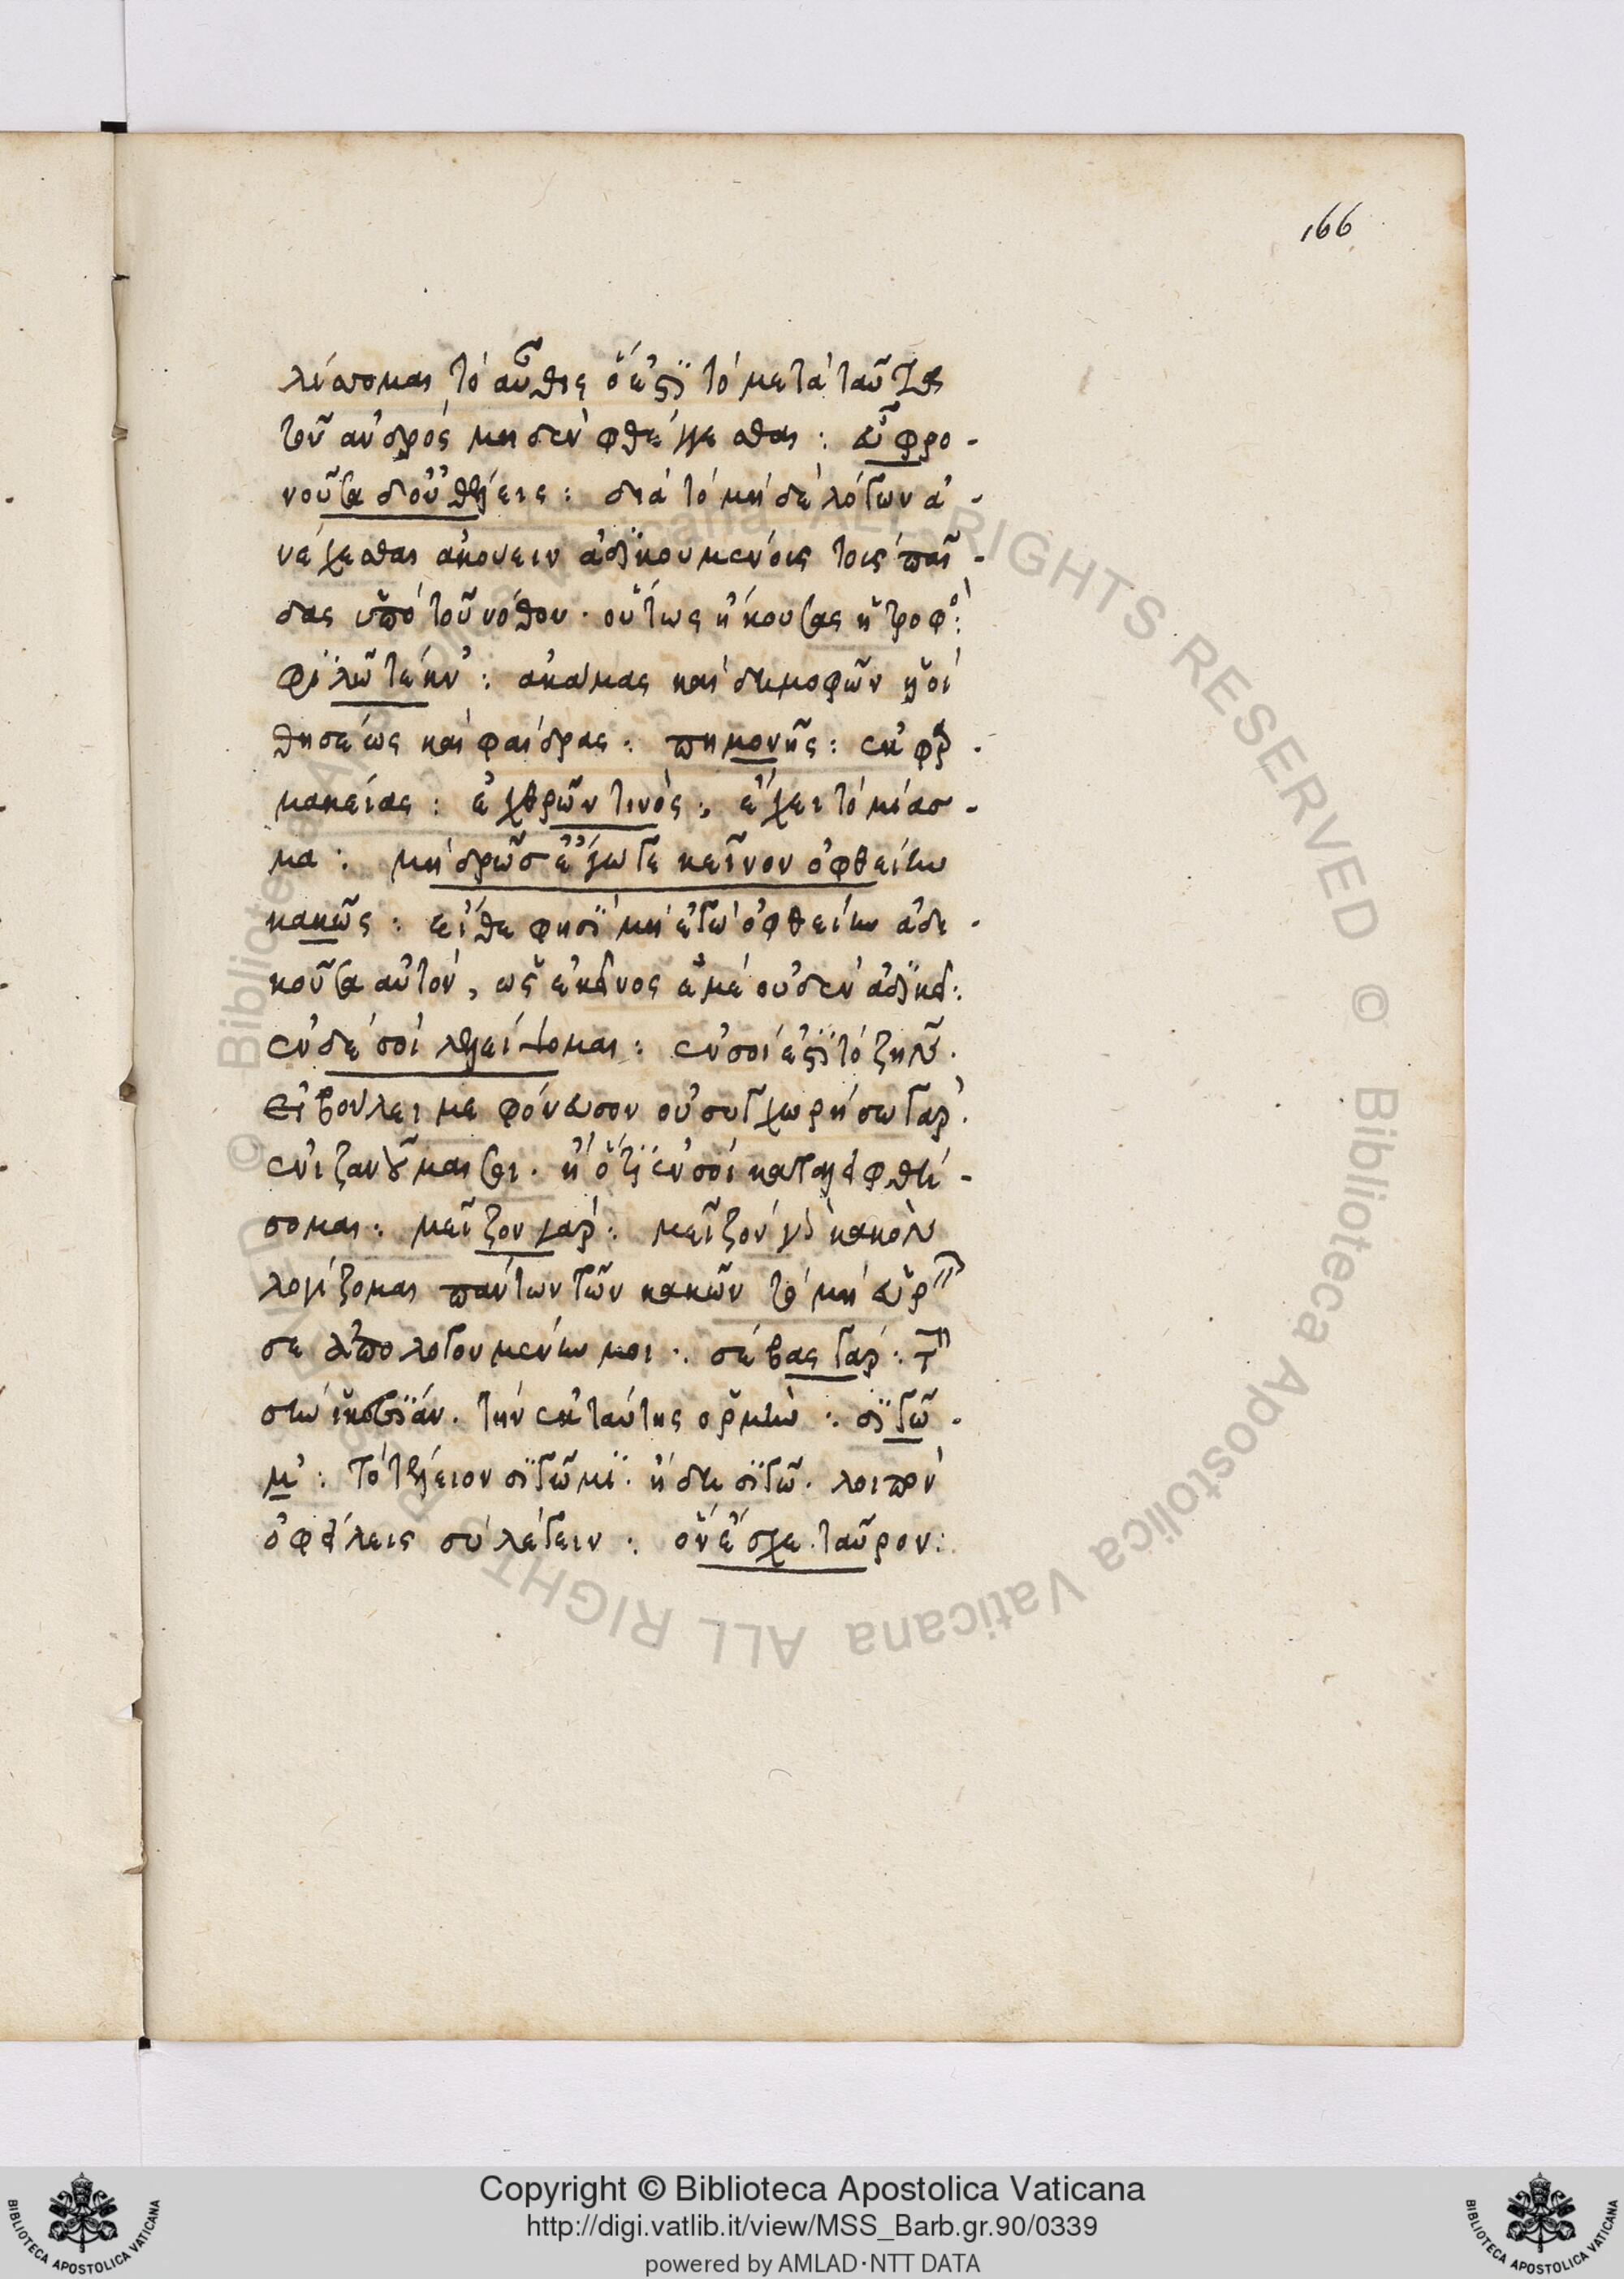 166
λίσσομαι τὸ αὖθις ὅ ἐστι τὸ μετὰ ταῦτα
τοῦ ἀνδρὸς μηδὲν φθέγγεσθαι : εὖ φρο-
νοῦσα δ' οὐ θέλεις : διὰ τὸ μηδὲ λόγων ἀ-
νέχεσθαι ἀκούειν ἀδικουμένοις τοῖς παῖ-
δας ὑπὸ τοῦ νόθου. οὕτως ἤκουσας ἡ τροφό:
φιλῶ τέκν' : ἀκάμας καὶ δημοφῶν οἱ
θησέως καὶ φαίδρας : πημονῆς : ἐκ φαρ-
μακείας : ἐχθρῶν τινός : ἔχει τὸ μίασ-
μα : μὴ δρῶσ' ἔγωγε κεῖνον ὀφθείην
κακῶς : εἴθε φησὶ μὴ ἐγὼ ὀφθείην ἀδι-
κοῦσα αὐτὸν, ὡς ἐκεῖνος ἐμὲ οὐδὲν ἀδικεῖ:
ἐν δὲ σοὶ λελείψομαι : ἐν σοί ἐστι τὸ ζῆν.
εἰ βούλει με φόνευσον οὐ συγχωρήσω γάρ.
σοι. ἢ ὅτι ἐν σοὶ καταλειφθή-
σομαι : μεῖζον γὰρ : μεῖζον κακὸν
λογίζομαι πάντων τῶν κακῶν τὸ μὴ
σε ἀπολογουμένην μοι : σέβας γὰρ : τ
τὴν ἐκ ταύτης ὁρμὴν : σιγῶ-
μ' : τὸ τέλειον σιγῶμι. ἤδη σιγῶ. λοιπὸν
ὀφείλεις σὺ λέγειν : ὃν ἔσχε ταῦρον :
Copyright © Biblioteca Apostolica Vaticana
http://digi.vatlib.it/view/MSS_Barb.gr.90/0339
powered by AMLAD·NTT DATA
BIBLIOTECA APOSTOLICA VATICANA
BIBLIOTECA APOSTOLICA VATICANA
© Biblioteca Apostolica Vaticana ALL RIGHTS RESERVED
© Biblioteca Apostolica Vaticana ALL RIGHTS RESERVED